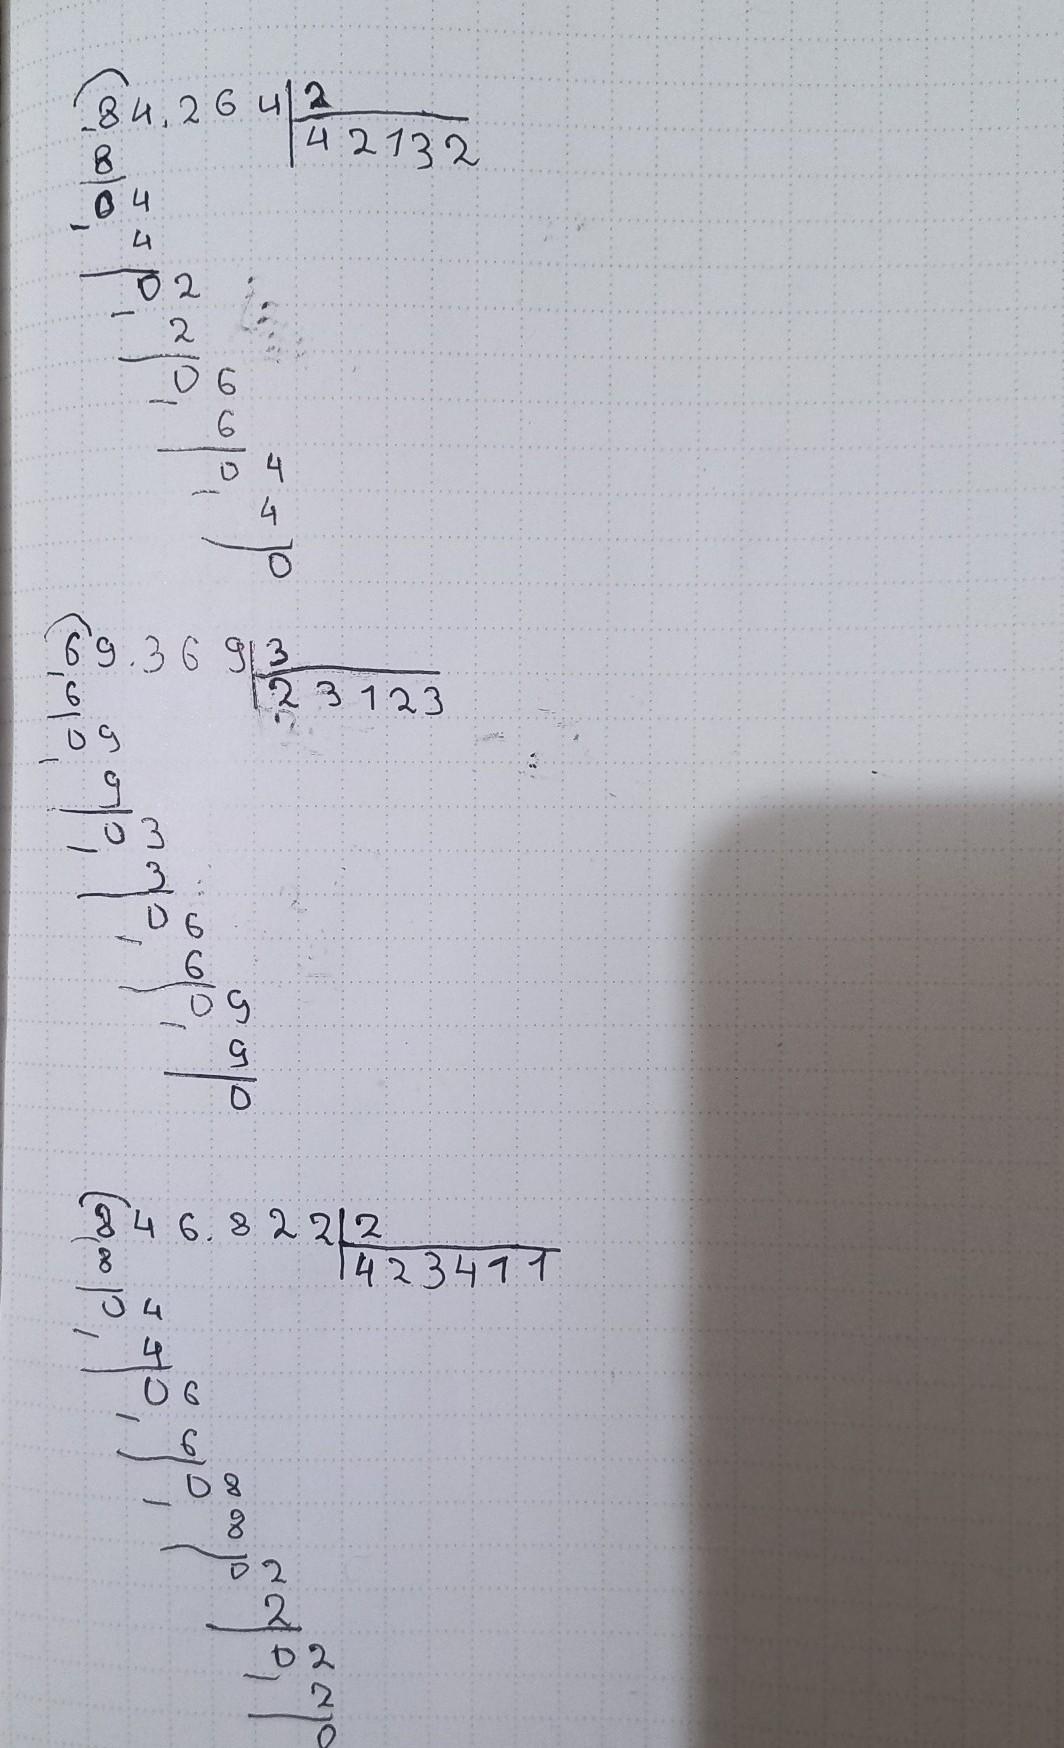 84.264 2
8 42132
04
4
02
2
06
6
04
4
0
69.369 3
6 23123
09
9
03
3
06
6
09
9
0
846.822 2
8 423411
04
4
06
6
08
8
02
2
02
2
0